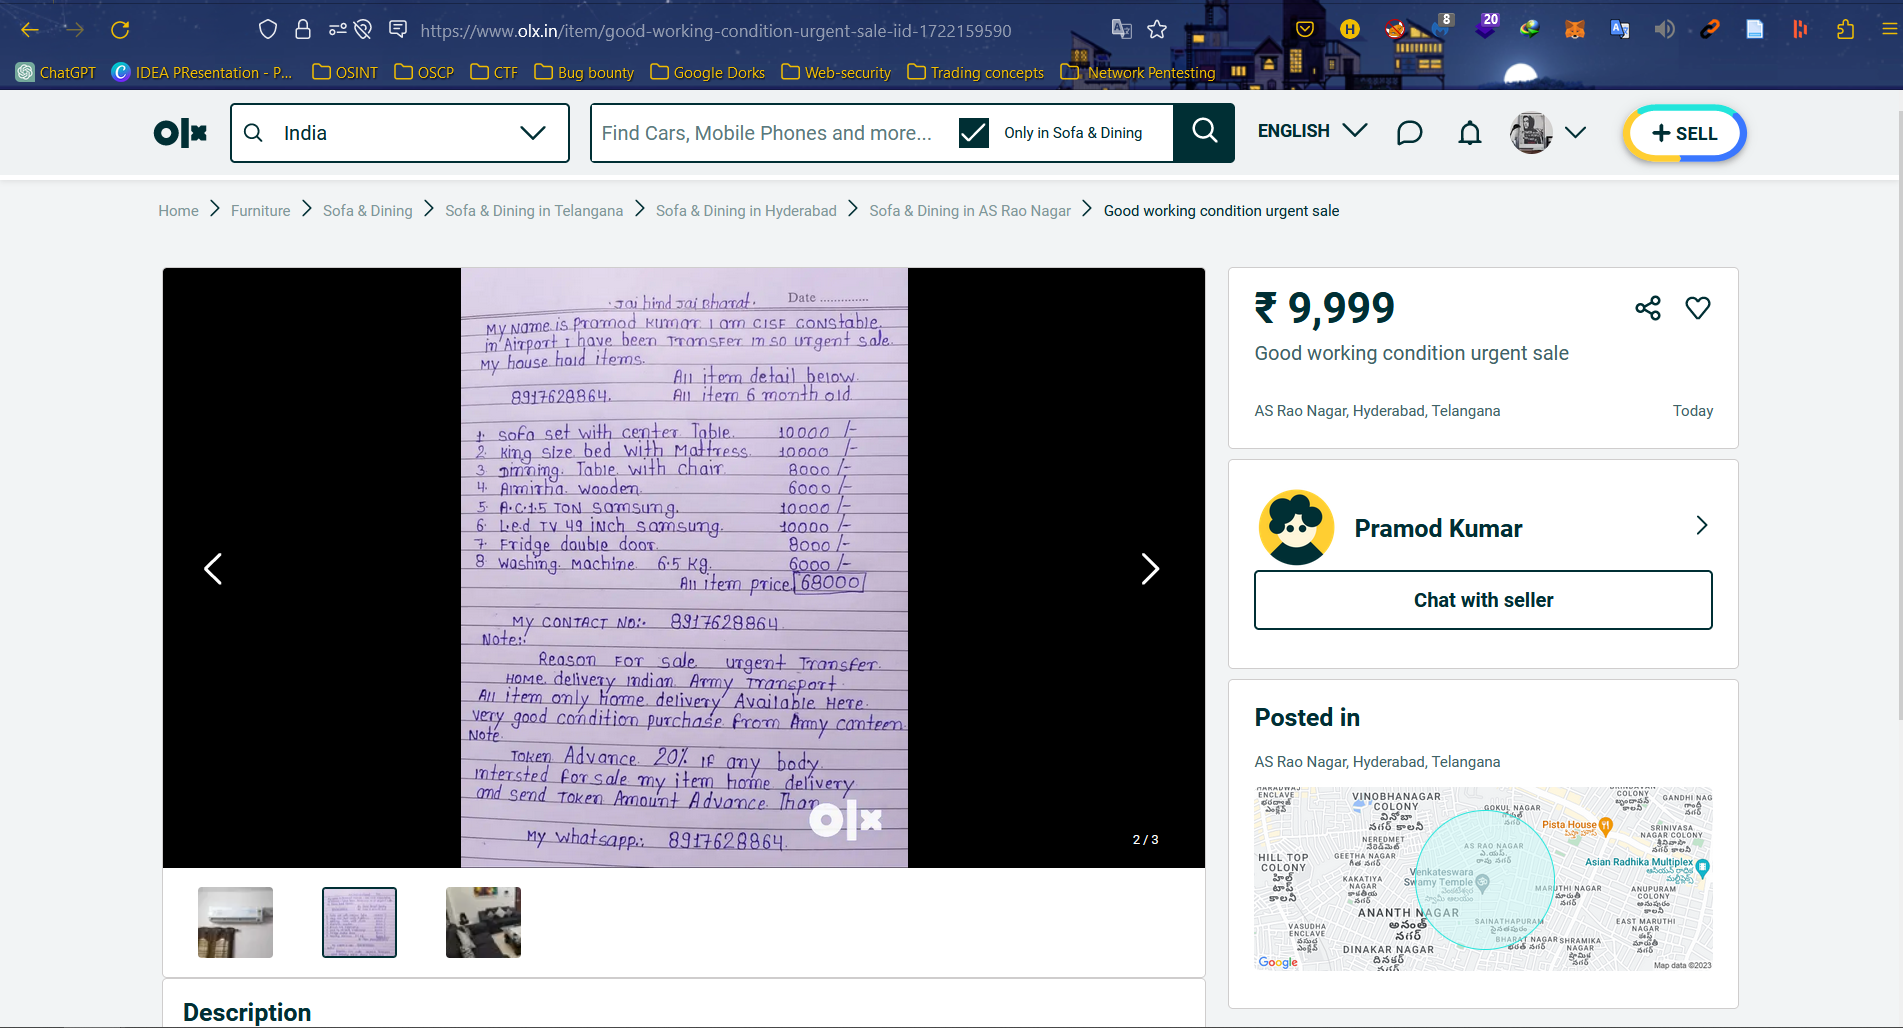 https://www.olx.in/item/good-working-condition-urgent-sale-iid-1722159590
8
20
ChatGPT
IDEA PResentation - P...
OSINT
OSCP
CTF
Bug bounty
Google Dorks
Web-security
Trading concepts
Network Pentesting
olx
India
Find Cars, Mobile Phones and more...
Only in Sofa & Dining
ENGLISH
+ SELL
Home
Furniture
Sofa & Dining
Sofa & Dining in Telangana
Sofa & Dining in Hyderabad
Sofa & Dining in AS Rao Nagar
Good working condition urgent sale
Jai hind Jai Bharat. Date ..............
My Name is Pramod Kumar I am CISF Constable.
in Airport I have been Transfer in so urgent sale.
My house hold items.
All item detail below.
8917628864. All item 6 month old
1. Sofa set with center Table. 10000 /-
2. King size bed with Mattress. 10000 /-
3. Dinning. Table with chair. 8000 /-
4. Almirha wooden. 6000 /-
5. A.C.1.5 TON Samsung. 10000 /-
6. L.e.d TV 49 inch Samsung. 10000 /-
7. Fridge double door. 8000 /-
8 Washing Machine 6.5 Kg. 6000 /-
All item price 68000
My Contact No:- 8917628864
Note:-
Reason For sale urgent Transfer.
Home. delivery indian Army Transport
All item only home delivery Available Here.
very good condition purchase from Army canteen.
Note.
Token Advance 20% if any body.
intersted for sale my item home delivery
and send Token Amount Advance Than
olx
My whatsapp:. 8917628864.
2 / 3
₹ 9,999
Good working condition urgent sale
AS Rao Nagar, Hyderabad, Telangana
Today
Pramod Kumar
Chat with seller
Posted in
AS Rao Nagar, Hyderabad, Telangana
ENCLAVE
VINOBHANAGAR
COLONY
వినోబా
నగర్ కాలనీ
GOKUL NAGAR
COLONY
కాలనీ
GANDHI NAG
గాంధీ
నగర్
Pista House
SRINIVASA
NAGAR COLONY
NEREDMET
నేరేడ్‌మెట్
GEETHA NAGAR
గీత నగర్
AS RAO NAGAR
ఏ.యస్.
రావు నగర్
Asian Radhika Multiplex
HILL TOP
COLONY
హిల్
టాప్
కాలనీ
KAKATIYA
NAGAR
కాకతీయ
నగర్
Venkateswara
Swamy Temple
MARUTHI NAGAR
మారుతీ
నగర్
ANUPURAM
COLONY
అనుపురం
కాలనీ
ANANTH NAGAR
అనంత్
నగర్
SAINATHAPURAM
EAST MARUTHI
NAGAR
VASUDHA
ENCLAVE
DINAKAR NAGAR
దినకర్
నగర్
BHARAT NAGAR
భరత్ నగర్
SHRAMIKA
NAGAR
Google
Map data ©2023
Description